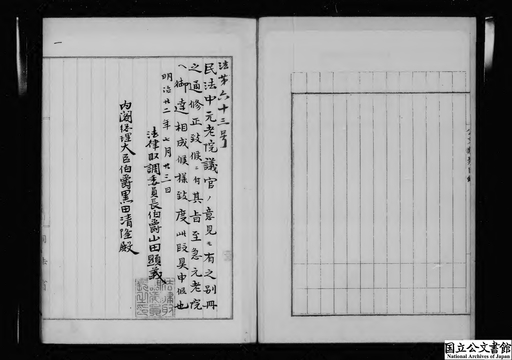 法第六十三号
民法中元老院議官ノ意見モ有之別冊
之通修正致候ニ付其旨至急元老院
ヘ御達相成候様致度此段具申候也
明治廿二年七月廿三日
法律取調委員長伯爵山田顕義
内閣総理大臣伯爵黒田清隆殿
一
国立公文書館
National Archives of Japan